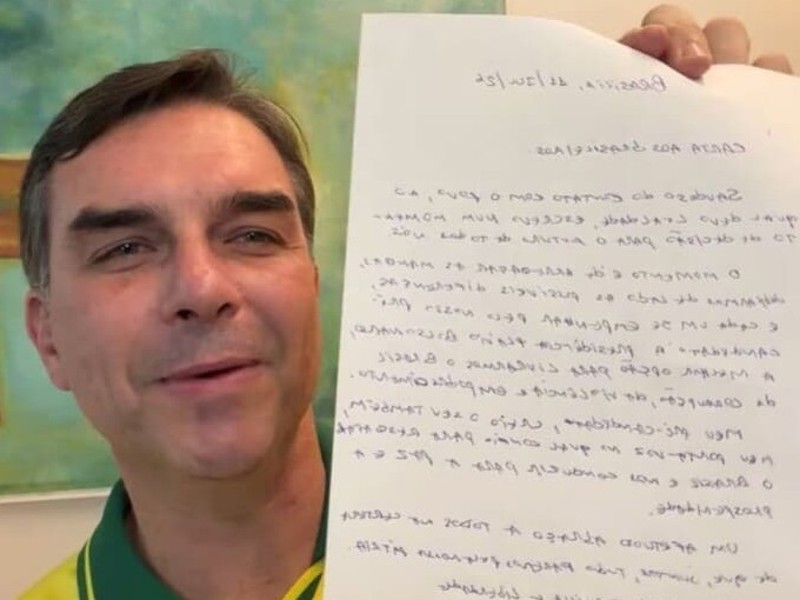 Brasília, 11/JUL/26
CARTA AOS BRASILEIROS
Saudoso do contato com o povo, ao
qual devo lealdade, escrevo num momen-
to de decisão para o futuro de todos nós
O momento é de arregaçar as mangas,
deixarmos de lado as possíveis diferenças,
e cada um se empenhar pelo nosso pré-
candidato à presidência Flávio Bolsonaro,
a minha opção para livrarmos o Brasil
da corrupção, da violência e empobrecimento.
Meu pré-candidato, creio o seu também,
meu porta-voz no qual confio para resgatar
o Brasil e nos conduzir para a paz e a
prosperidade.
Um apertado abraço a todos na certeza
de que, juntos, tudo faremos por nossa pátria.
e liberdade